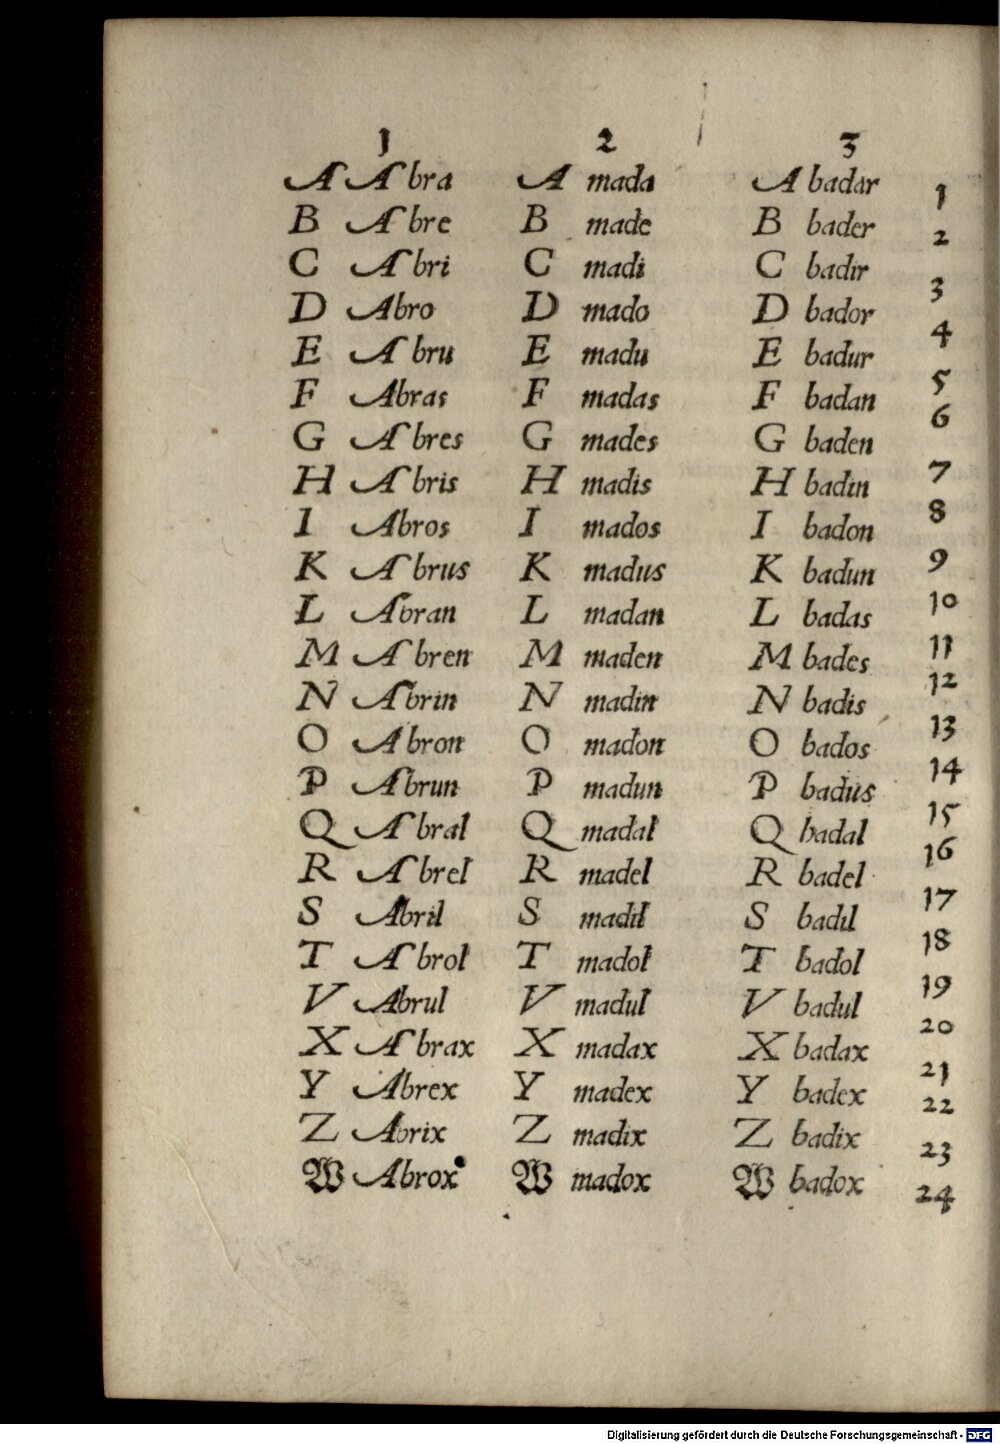 1 2 3
A Abra A mada A badar 1
B Abre B made B bader 2
C Abri C madi C badir 3
D Abro D mado D bador 4
E Abru E madu E badur 5
F Abras F madas F badan 6
G Abres G mades G baden 7
H Abris H madis H badin 8
I Abros I mados I badon 9
K Abrus K madus K badun 10
L Abran L madan L badas 11
M Abren M maden M bades 12
N Abrin N madin N badis 13
O Abron O madon O bados 14
P Abrun P madun P badus 15
Q Abral Q madal Q badal 16
R Abrel R madel R badel 17
S Abril S madil S badil 18
T Abrol T madol T badol 19
V Abrul V madul V badul 20
X Abrax X madax X badax 21
Y Abrex Y madex Y badex 22
Z Abrix Z madix Z badix 23
W Abrox W madox W badox 24
Digitalisierung gefördert durch die Deutsche Forschungsgemeinschaft - DFG